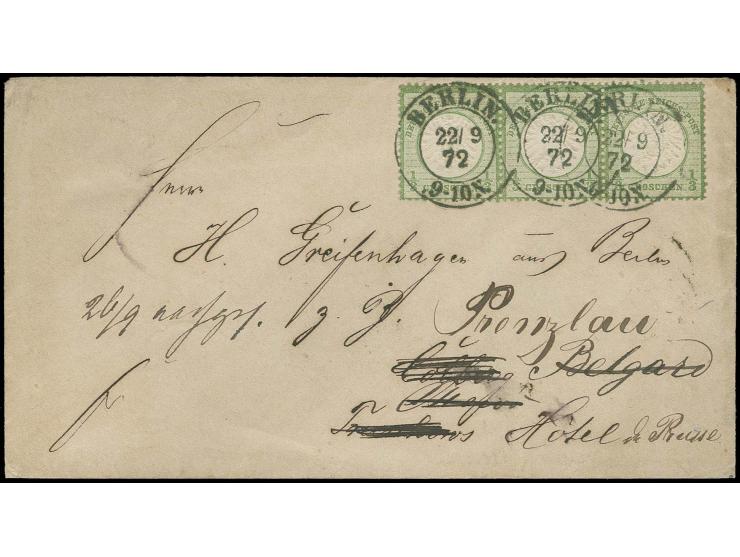 BERLIN. BERLIN. BERLIN.
22/9 22/9 22/9
72 72 72
9-10N. 9-10N. 9-10N.
GROSCHEN. 1/3
Herrn
H. Greifenhagen aus Berlin
26/9 nachges. z. Z. Prenzlau
Colberg Belgard
Hôtel de Prusse